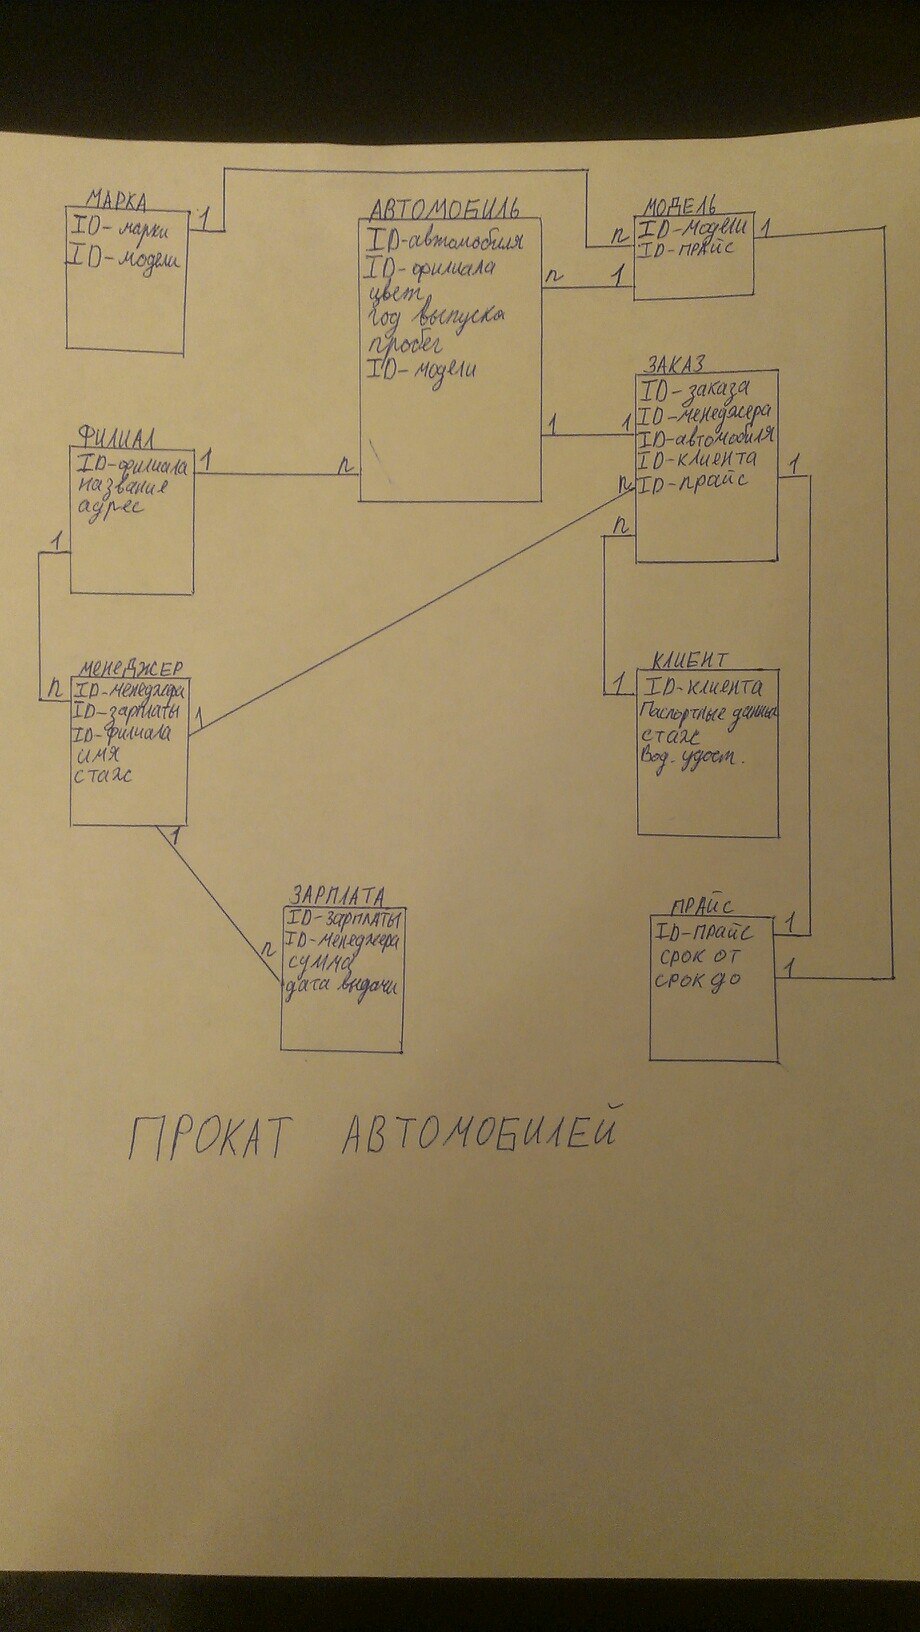 МАРКА
ID-марки
ID-модели
1
АВТОМОБИЛЬ
ID-автомобиля
ID-филиала
цвет
год выпуска
пробег
ID-модели
n
1
МОДЕЛЬ
ID-модели
ID-прайс
n
1
1
ЗАКАЗ
ID-заказа
ID-менеджера
ID-автомобиля
ID-клиента
ID-прайс
1
n
n
1
ФИЛИАЛ
ID-филиала
название
адрес
1
n
1
МЕНЕДЖЕР
ID-менеджера
ID-зарплаты
ID-филиала
имя
стаж
n
1
1
КЛИЕНТ
ID-клиента
Паспортные данные
стаж
Вод. удост.
1
ЗАРПЛАТА
ID-зарплаты
ID-менеджера
сумма
дата выдачи
n
ПРАЙС
ID-прайс
срок от
срок до
1
1
ПРОКАТ АВТОМОБИЛЕЙ